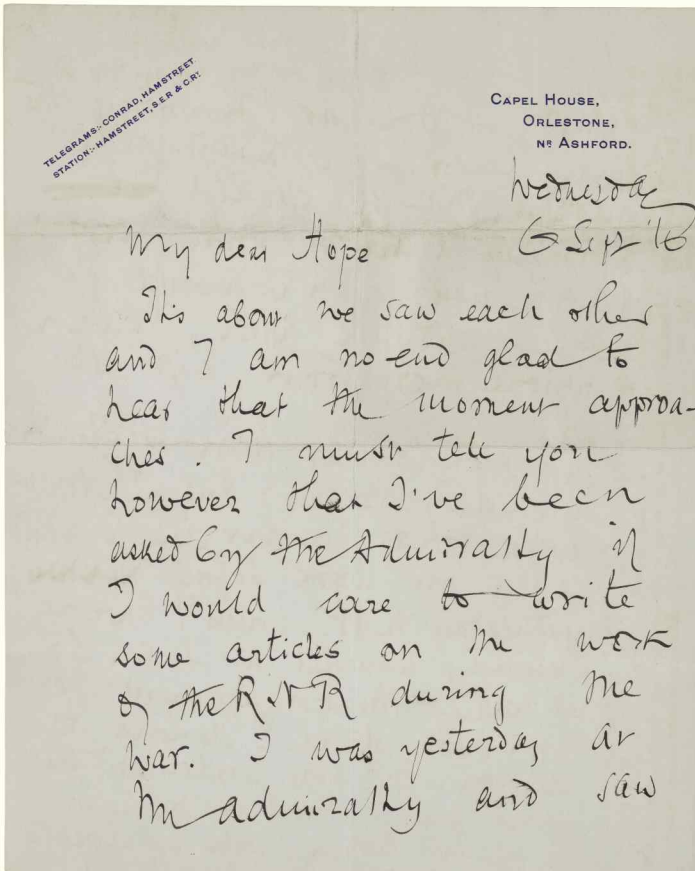 TELEGRAMS:- CONRAD, HAMSTREET
STATION:- HAMSTREET, S.E.R & C.RY
CAPEL HOUSE,
ORLESTONE,
NR ASHFORD.
Wednesday
6 Sept '16
My dear Hope
It is about we saw each other
and I am no end glad to
hear that the moment approa-
ches. I must tell you
however that I've been
asked by the Admiralty if
I would care to write
some articles on the work
of the RNR during the
war. I was yesterday at
the admiralty and saw